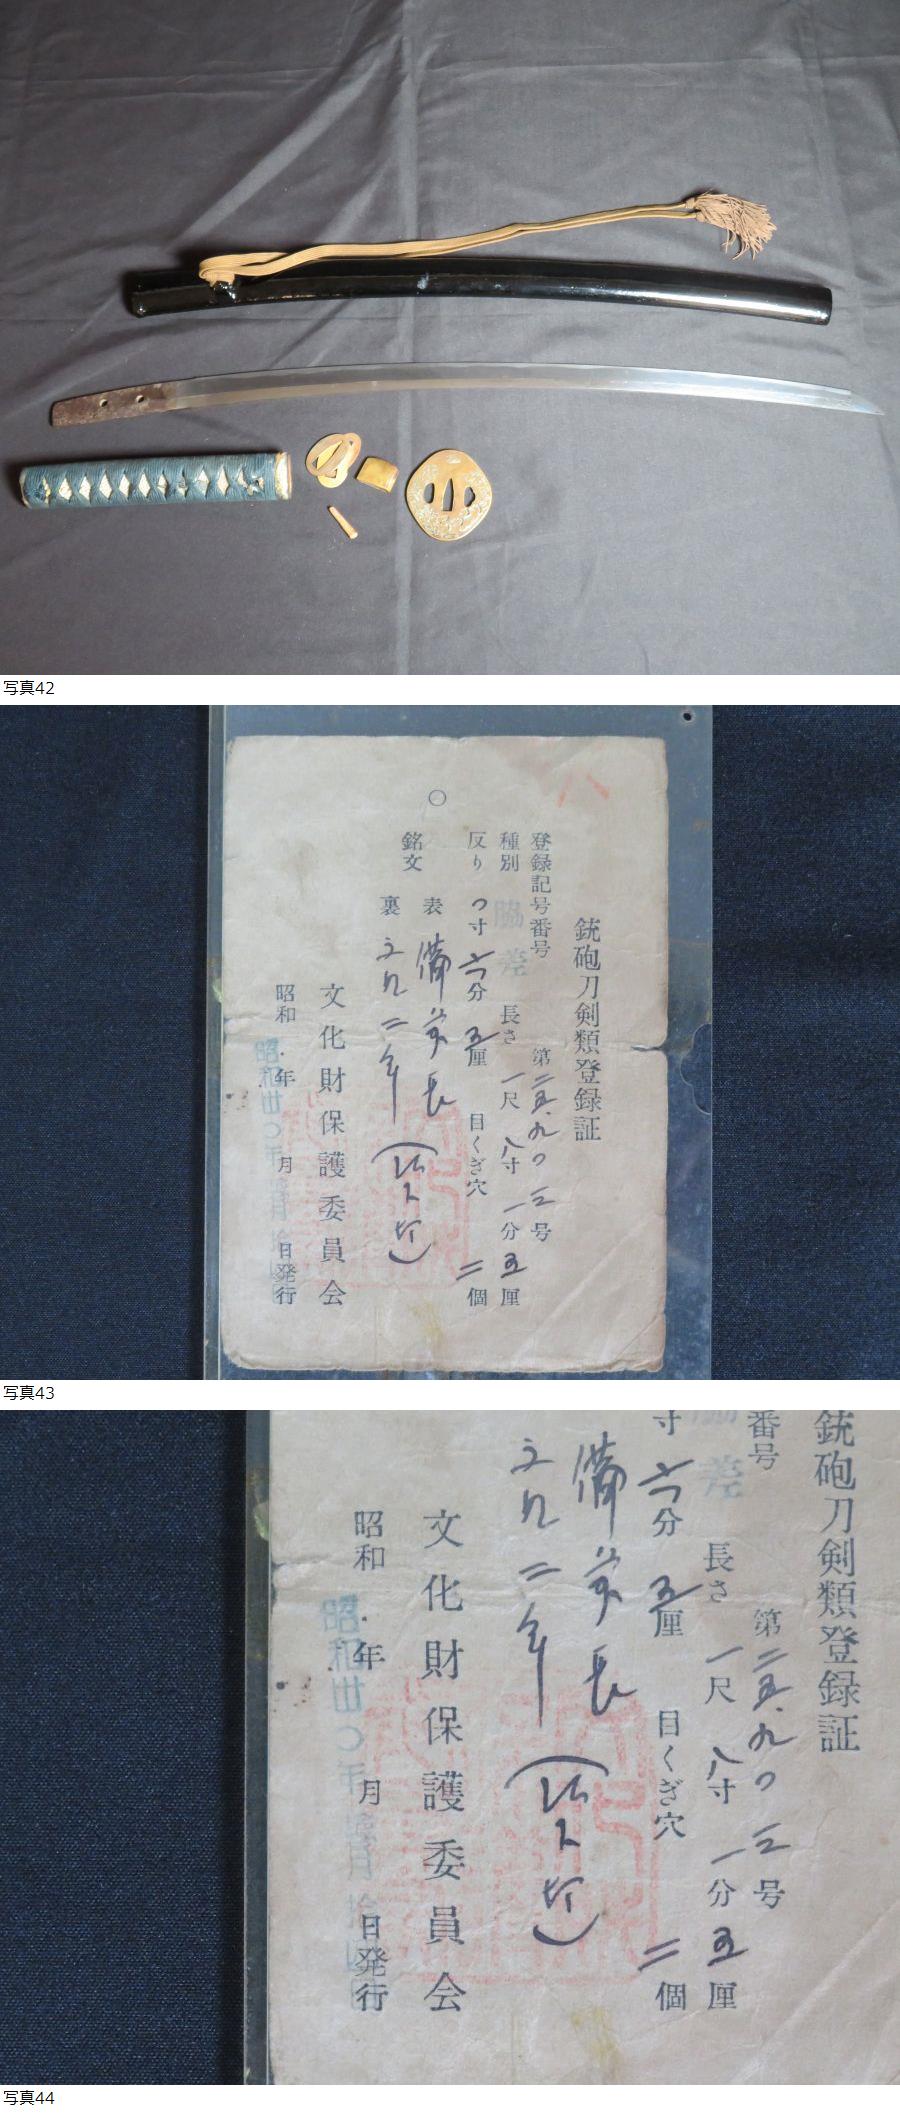 写真42
銃砲刀剣類登録証
登録記号番号 第二五九〇三号
種別 脇差 長さ 一尺八寸一分五厘
反り 〇寸六分五厘 目くぎ穴 二個
〇
銘文 表 備
裏 二年
文化財保護委員会
昭和 年 月 日発行
昭和卅〇年
写真43
銃砲刀剣類登録証
番号 第二五九〇三号
脇差 長さ 一尺八寸一分五厘
寸六分五厘 目くぎ穴 二個
備
二年
文化財保護委員会
昭和 年 月 日発行
昭和卅〇年
写真44